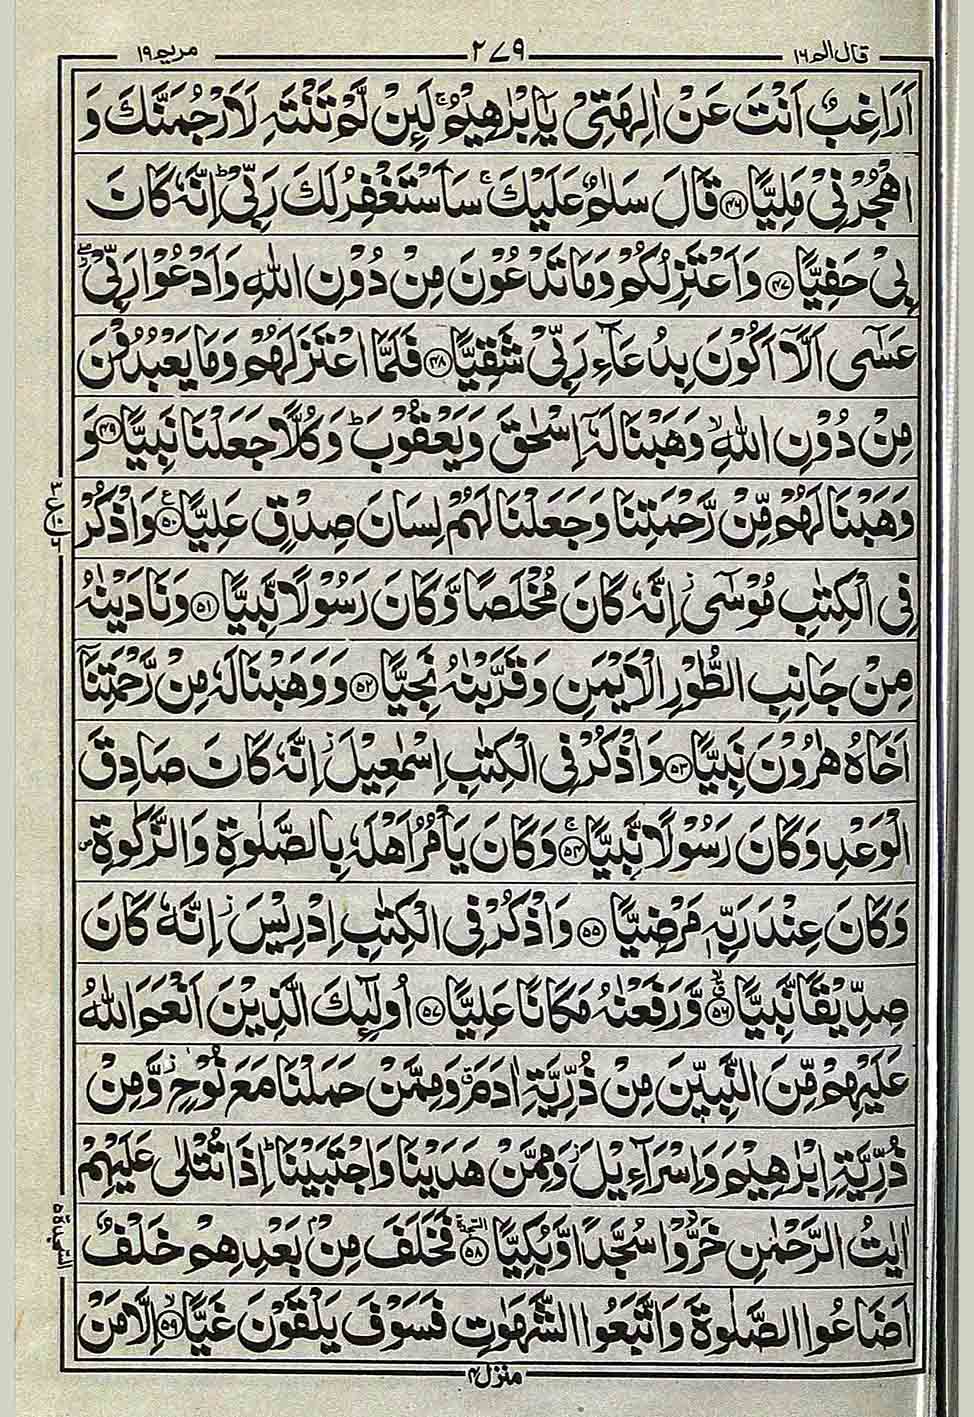 قال الم ١٦ ٢٧٩ مريم ١٩
اَرَاغِبٌ اَنْتَ عَنْ اٰلِهَتِيْ يٰۤاِبْرٰهِيْمُ ۚ لَىِٕنْ لَّمْ تَنْتَهِ لَاَرْجُمَنَّكَ وَ
اهْجُرْنِيْ مَلِيًّا ﴿٤٦﴾ قَالَ سَلٰمٌ عَلَيْكَ ۚ سَاَسْتَغْفِرُ لَكَ رَبِّيْ ؕ اِنَّهٗ كَانَ
بِيْ حَفِيًّا ﴿٤٧﴾ وَاَعْتَزِلُكُمْ وَمَا تَدْعُوْنَ مِنْ دُوْنِ اللّٰهِ وَاَدْعُوْا رَبِّيْ ۖ
عَسٰۤى اَلَّاۤ اَكُوْنَ بِدُعَآءِ رَبِّيْ شَقِيًّا ﴿٤٨﴾ فَلَمَّا اعْتَزَلَهُمْ وَمَا يَعْبُدُوْنَ
مِنْ دُوْنِ اللّٰهِ ۙ وَهَبْنَا لَهٗۤ اِسْحٰقَ وَيَعْقُوْبَ ؕ وَكُلًّا جَعَلْنَا نَبِيًّا ﴿٤٩﴾ وَ
وَهَبْنَا لَهُمْ مِّنْ رَّحْمَتِنَا وَجَعَلْنَا لَهُمْ لِسَانَ صِدْقٍ عَلِيًّا ﴿٥٠﴾ وَاذْكُرْ
فِي الْكِتٰبِ مُوْسٰۤى ؗ اِنَّهٗ كَانَ مُخْلَصًا وَّكَانَ رَسُوْلًا نَّبِيًّا ﴿٥١﴾ وَنَادَيْنٰهُ
مِنْ جَانِبِ الطُّوْرِ الْاَيْمَنِ وَقَرَّبْنٰهُ نَجِيًّا ﴿٥٢﴾ وَوَهَبْنَا لَهٗ مِنْ رَّحْمَتِنَاۤ
اَخَاهُ هٰرُوْنَ نَبِيًّا ﴿٥٣﴾ وَاذْكُرْ فِي الْكِتٰبِ اِسْمٰعِيْلَ ؗ اِنَّهٗ كَانَ صَادِقَ
الْوَعْدِ وَكَانَ رَسُوْلًا نَّبِيًّا ﴿٥٤﴾ۚ وَكَانَ يَاْمُرُ اَهْلَهٗ بِالصَّلٰوةِ وَالزَّكٰوةِ ۪
وَكَانَ عِنْدَ رَبِّهٖ مَرْضِيًّا ﴿٥٥﴾ وَاذْكُرْ فِي الْكِتٰبِ اِدْرِيْسَ ؗ اِنَّهٗ كَانَ
صِدِّيْقًا نَّبِيًّا ﴿٥٦﴾ وَّرَفَعْنٰهُ مَكَانًا عَلِيًّا ﴿٥٧﴾ اُولٰٓىِٕكَ الَّذِيْنَ اَنْعَمَ اللّٰهُ
عَلَيْهِمْ مِّنَ النَّبِيّٖنَ مِنْ ذُرِّيَّةِ اٰدَمَ ۗ وَمِمَّنْ حَمَلْنَا مَعَ نُوْحٍ ؗ وَّمِنْ
ذُرِّيَّةِ اِبْرٰهِيْمَ وَاِسْرَآءِيْلَ ؗ وَمِمَّنْ هَدَيْنَا وَاجْتَبَيْنَا ؕ اِذَا تُتْلٰى عَلَيْهِمْ
اٰيٰتُ الرَّحْمٰنِ خَرُّوْا سُجَّدًا وَّبُكِيًّا ﴿٥٨﴾ فَخَلَفَ مِنْۢ بَعْدِهِمْ خَلْفٌ
اَضَاعُوا الصَّلٰوةَ وَاتَّبَعُوا الشَّهَوٰتِ فَسَوْفَ يَلْقَوْنَ غَيًّا ﴿٥٩﴾ۙ اِلَّا مَنْ
منزل ٤